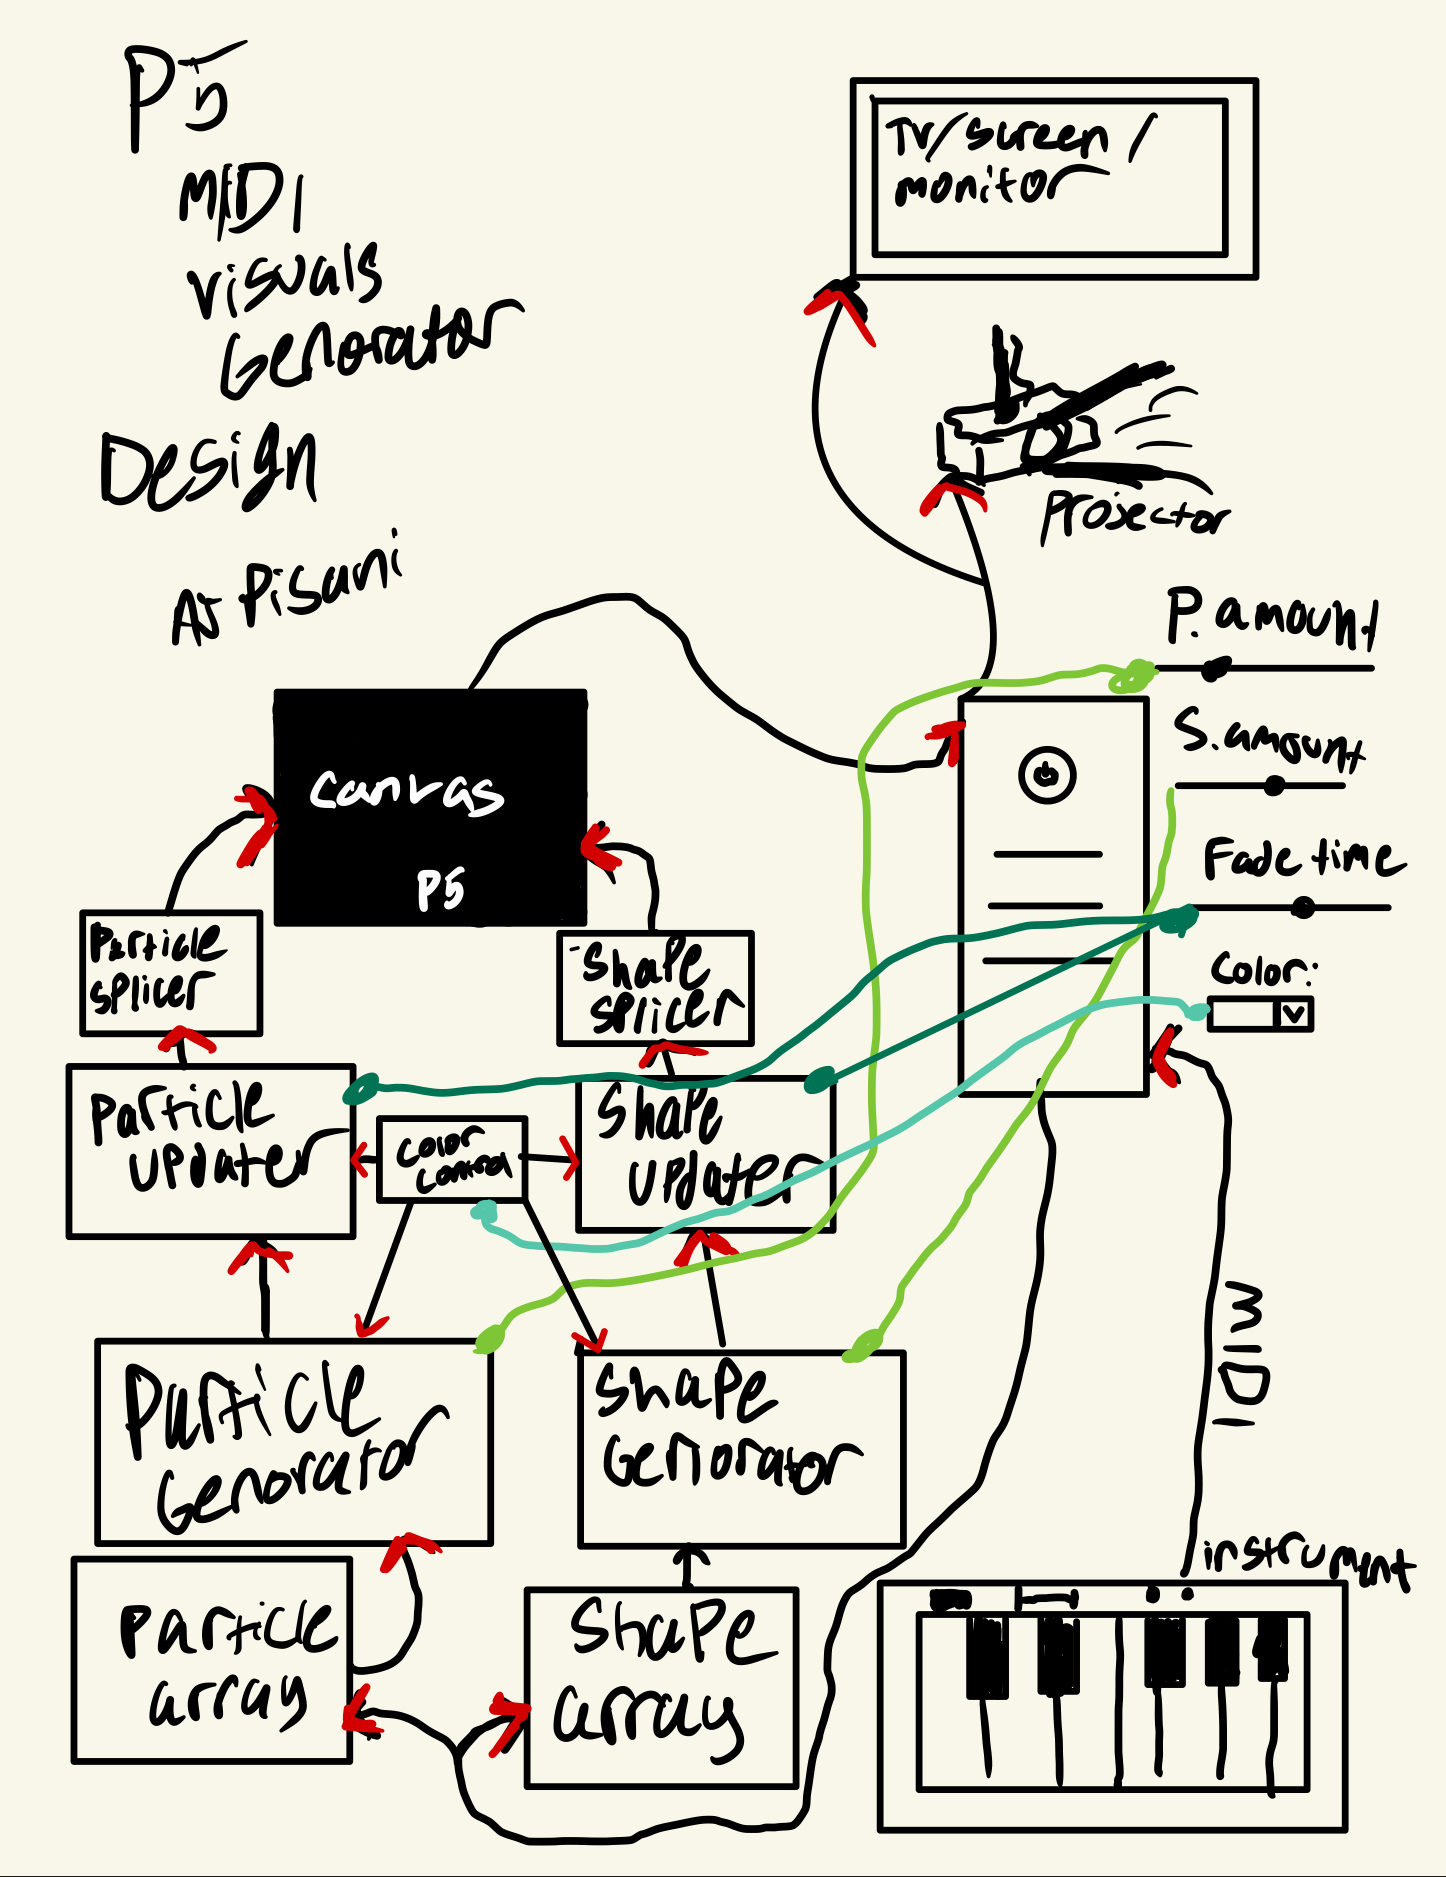 P5
MIDI
visuals
Generator
Design
AJ Pisani
TV/screen/
monitor
Projector
P. amount
S. amount
Fade time
Color:
Canvas
P5
Particle
Splicer
Shape
Splicer
Particle
Updater
Color
Control
Shape
Updater
Particle
Generator
Shape
Generator
Particle
array
Shape
array
MIDI
instrument